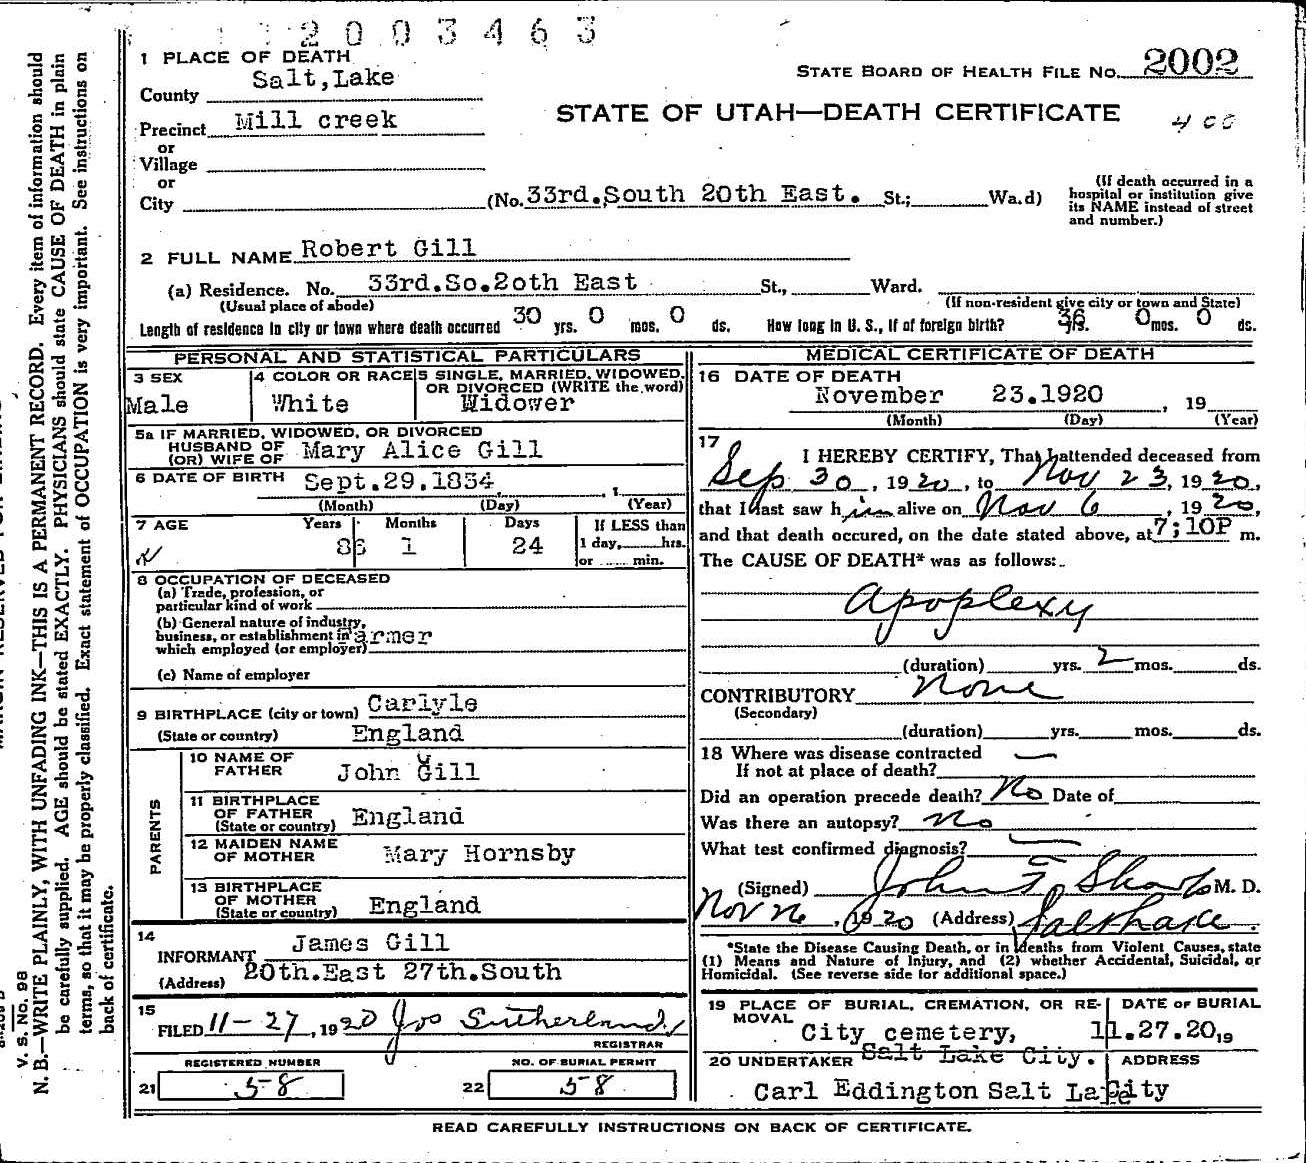 2003463
1 PLACE OF DEATH
STATE BOARD OF HEALTH FILE NO. 2002
County Salt,Lake
STATE OF UTAH—DEATH CERTIFICATE
400
Precinct Mill creek
or
Village
or
City
(No. 33rd.South 20th East. St.; Wa.d)
(If death occurred in a
hospital or institution give
its NAME instead of street
and number.)
2 FULL NAME Robert Gill
(a) Residence. No. 33rd.So.2oth East St., Ward.
(Usual place of abode)
(If non-resident give city or town and State)
Length of residence in city or town where death occurred 30 yrs. 0 mos. 0 ds. How long in U. S., if of foreign birth? 36 yrs. 0 mos. 0 ds.
PERSONAL AND STATISTICAL PARTICULARS
3 SEX
Male
4 COLOR OR RACE
White
5 SINGLE, MARRIED, WIDOWED,
OR DIVORCED (WRITE the word)
Widower
5a IF MARRIED, WIDOWED, OR DIVORCED
HUSBAND OF
(OR) WIFE OF Mary Alice Gill
6 DATE OF BIRTH Sept.29.1834
(Month) (Day) (Year)
7 AGE Years Months Days
86 1 24
If LESS than
1 day, hrs.
or ...... min.
8 OCCUPATION OF DECEASED
(a) Trade, profession, or
particular kind of work
(b) General nature of industry,
business, or establishment in Farmer
which employed (or employer)
(c) Name of employer
9 BIRTHPLACE (city or town) Carlyle
(State or country) England
PARENTS
10 NAME OF
FATHER John Gill
11 BIRTHPLACE
OF FATHER
(State or country) England
12 MAIDEN NAME
OF MOTHER Mary Hornsby
13 BIRTHPLACE
OF MOTHER
(State or country) England
14
INFORMANT James Gill
(Address) 20th.East 27th.South
15
FILED 11-27, 1920 Jos Sutherland
REGISTRAR
REGISTERED NUMBER
21 58
NO. OF BURIAL PERMIT
22 58
MEDICAL CERTIFICATE OF DEATH
16 DATE OF DEATH
November 23.1920, 19
(Month) (Day) (Year)
17
I HEREBY CERTIFY, That I attended deceased from
Sep 30, 1920, to Nov 23, 1920,
that I last saw h im alive on Nov 6, 1920,
and that death occured, on the date stated above, at 7;10P m.
The CAUSE OF DEATH* was as follows:
Apoplexy
(duration) yrs. 2 mos. ds.
CONTRIBUTORY None
(Secondary)
(duration) yrs. mos. ds.
18 Where was disease contracted
If not at place of death? —
Did an operation precede death? No Date of
Was there an autopsy? No
What test confirmed diagnosis? —
(Signed) John F Sharp M. D.
Nov 26, 1920 (Address) Salt Lake.
*State the Disease Causing Death, or in deaths from Violent Causes, state
(1) Means and Nature of Injury, and (2) whether Accidental, Suicidal, or
Homicidal. (See reverse side for additional space.)
19 PLACE OF BURIAL, CREMATION, OR RE-
MOVAL
City cemetery,
Salt Lake City.
DATE OF BURIAL
11.27.20, 19
20 UNDERTAKER
Carl Eddington
ADDRESS
Salt Lake City
READ CAREFULLY INSTRUCTIONS ON BACK OF CERTIFICATE.
V. S. No. 98
N. B.—WRITE PLAINLY, WITH UNFADING INK—THIS IS A PERMANENT RECORD. Every item of information should
be carefully supplied. AGE should be stated EXACTLY. PHYSICIANS should state CAUSE OF DEATH in plain
terms, so that it may be properly classified. Exact statement of OCCUPATION is very important. See instructions on
back of certificate.